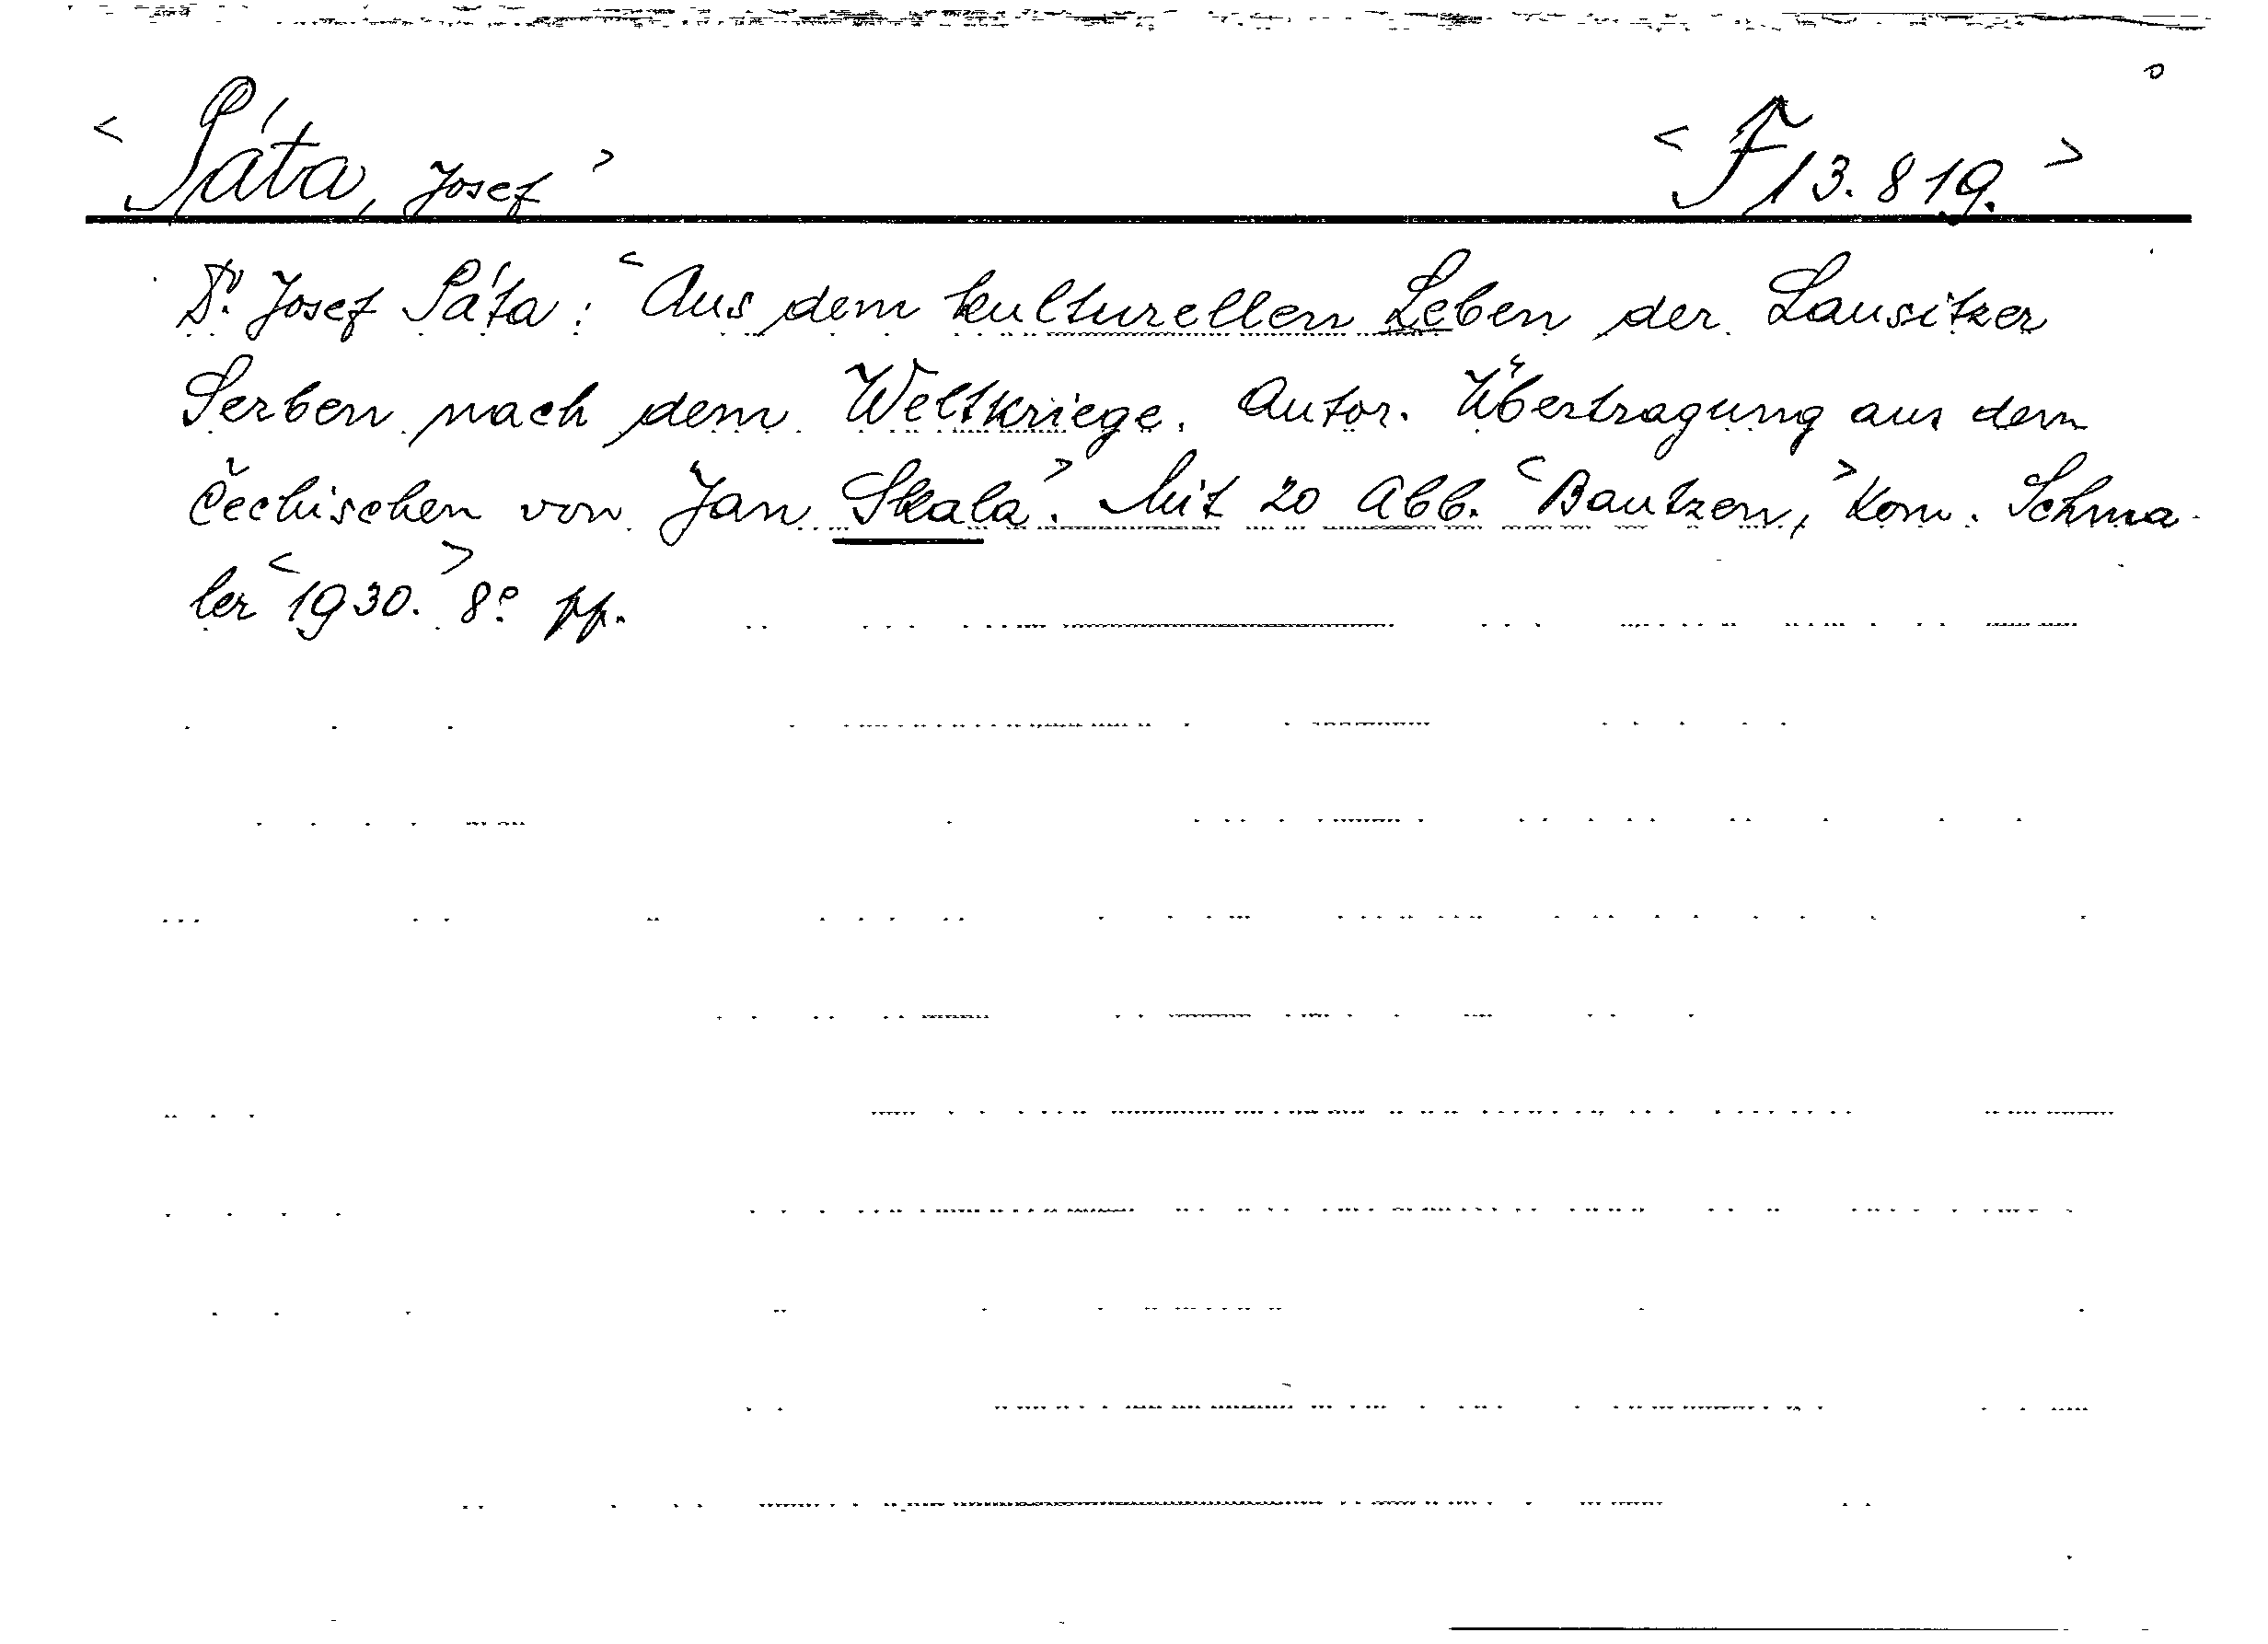 < Páta, Josef > < F 13.819. >
Dr. Josef Páta: < Aus dem kulturellen Leben der Lausitzer
Serben nach dem Weltkriege. Autor. Übertragung aus dem
Čechischen von Jan Skala. > Mit 20 Abb. < Bautzen, > Kom. Schma-
ler < 1930. > 8° pp.